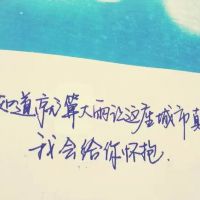 知道就算大雨让这座城市
我会给你怀抱.